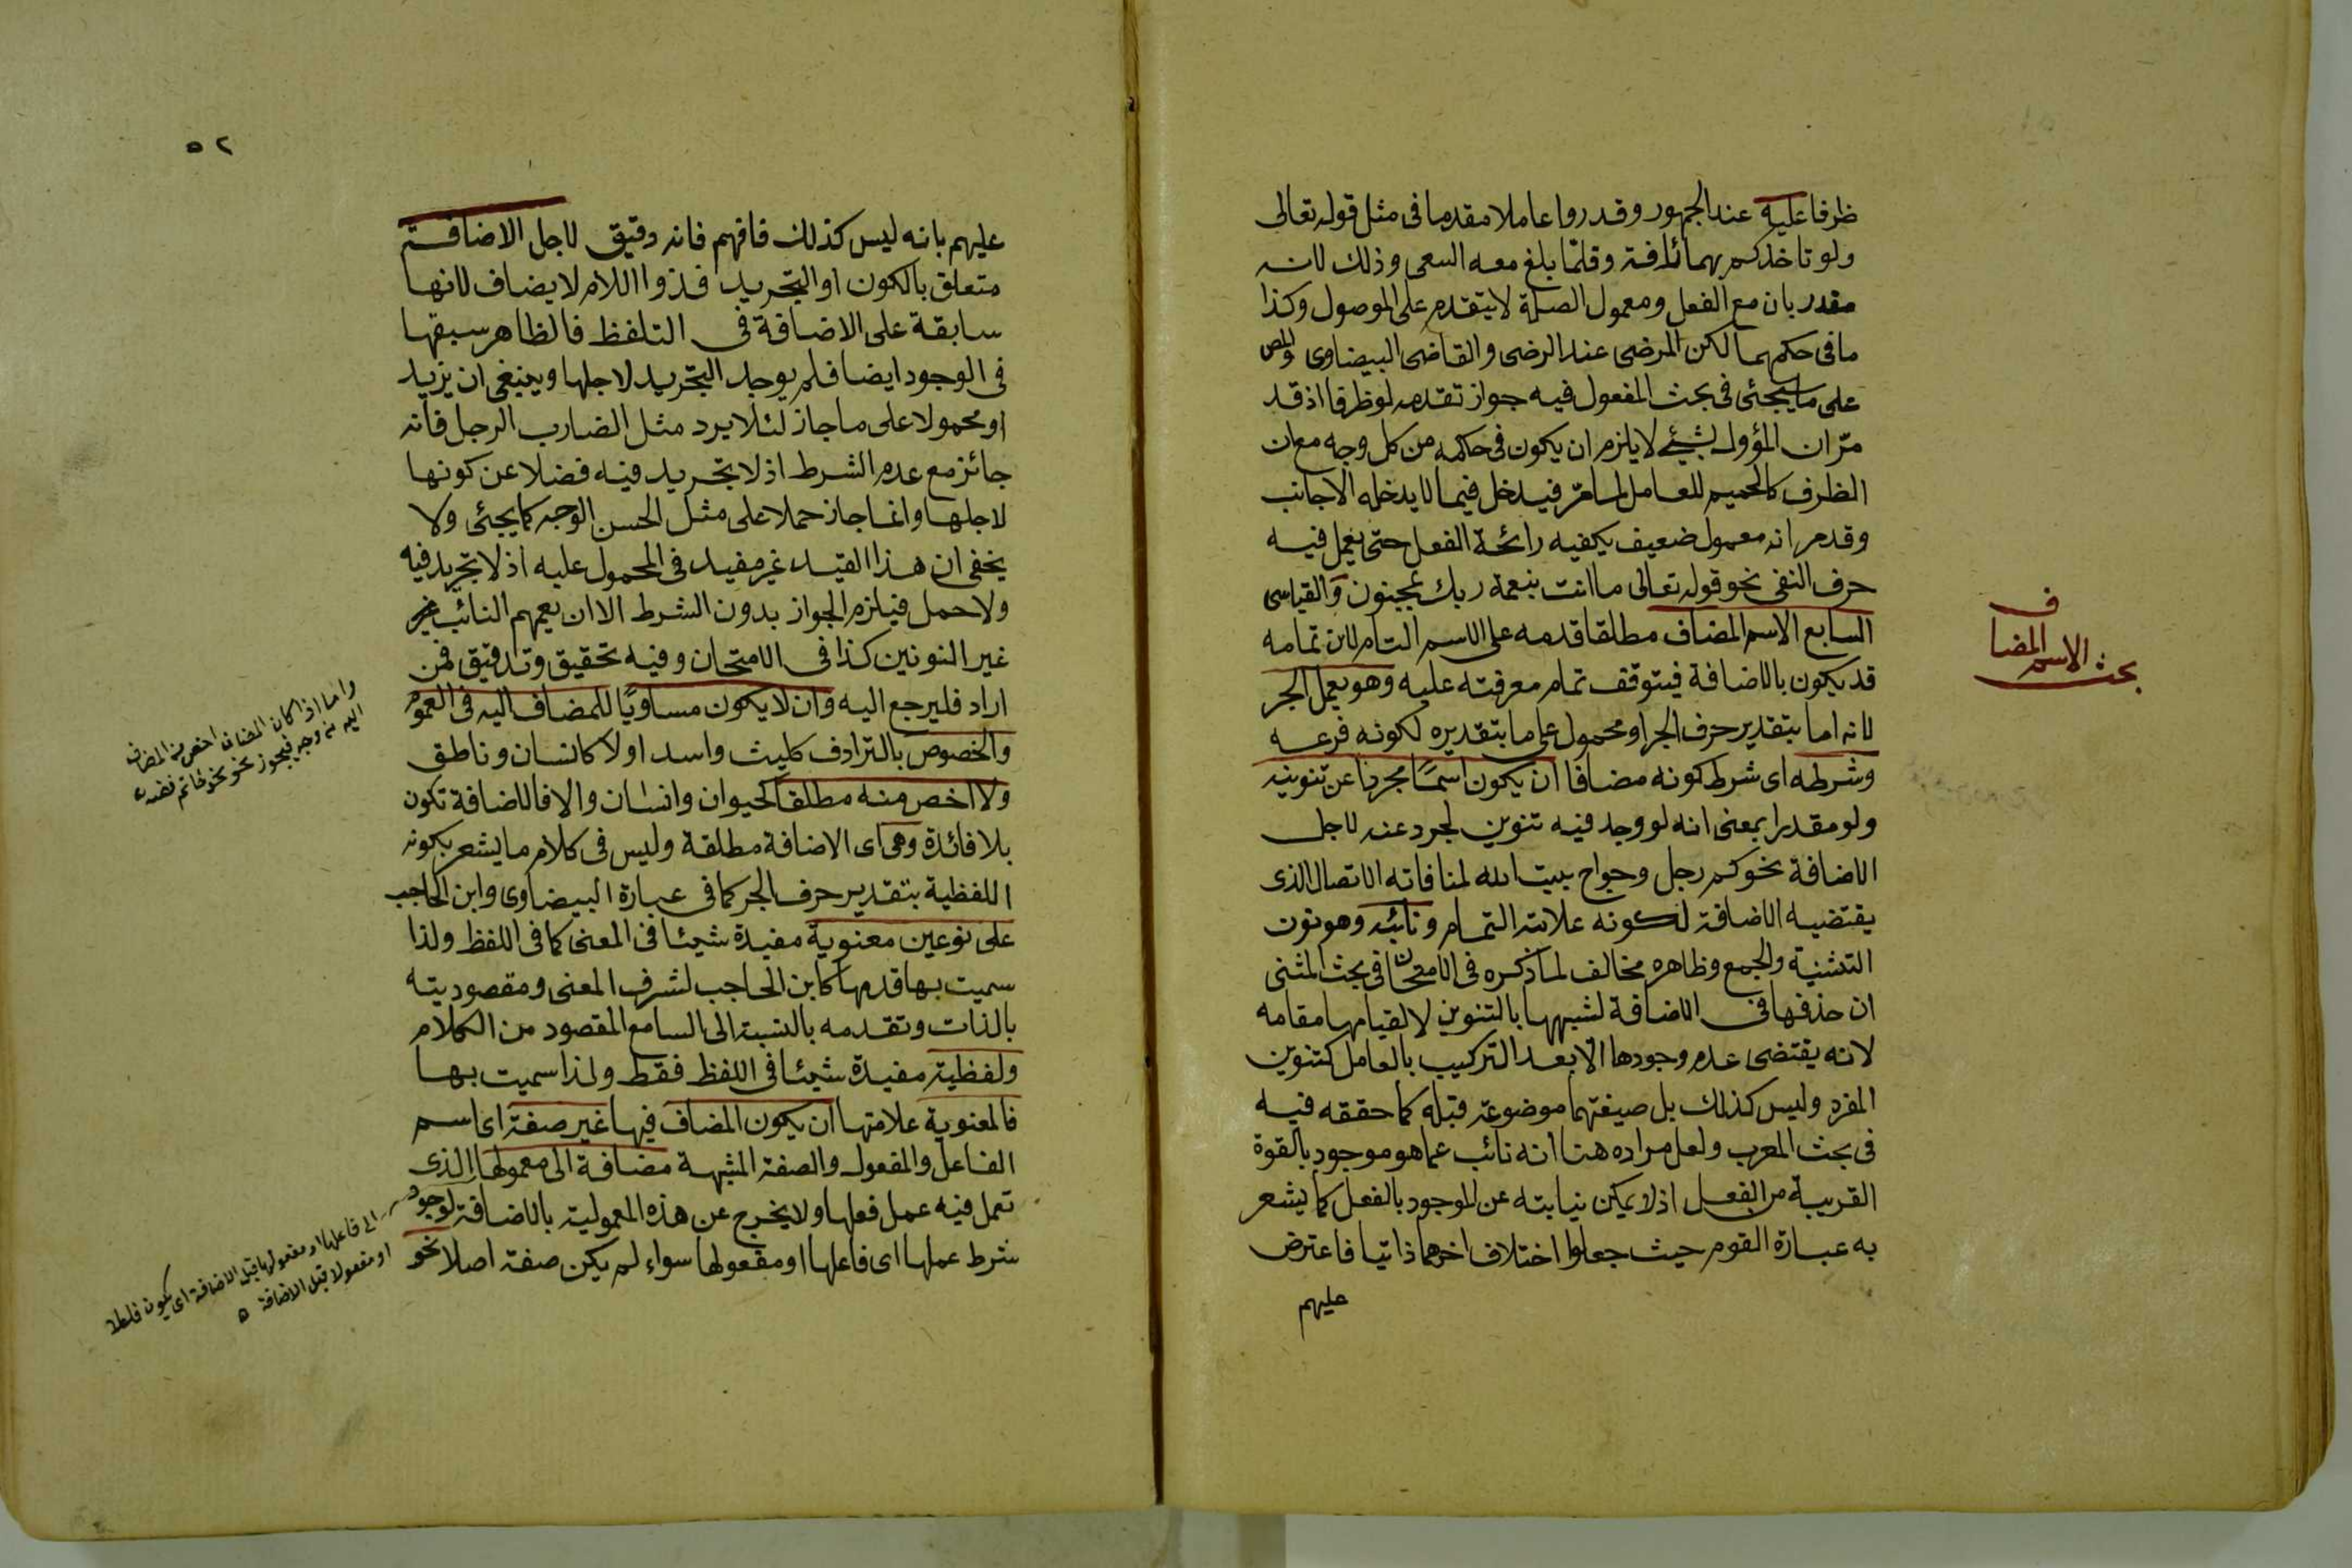 ظرفا عليه عند الجمهور وقدروا عاملا مقدما فى مثل قوله تعالى
ولو تاخذكم بهما رأفة وقلما بلغ معه السعى وذلك لانه
مقدر بان مع الفعل ومعمول الصلة لا يتقدم على الموصول وكذا
ما فى حكمهما لكن المرضى عند الرضى والقاضى البيضاوى والمص
على ما سيجئى فى بحث المفعول فيه جواز تقدمه لو ظرفا اذ قد
مرّ ان المؤول بشيئ لا يلزم ان يكون فى حكمه من كل وجه مع ان
الظرف كالحميم للعامل لما مر فيدخل فيما لا يدخله الاجانب
وقد مر انه معمول ضعيف يكفيه رائحة الفعل حتى يعمل فيه
حرف النفى نحو قوله تعالى ما انت بنعمة ربك بمجنون والقياسى
السابع الاسم المضاف مطلقا قدمه على الاسم التام لان تمامه
قد يكون بالاضافة فيتوقف تمام معرفته عليه وهو يعمل الجر
لانه اما بتقدير حرف الجر او محمول على ما بتقديره لكونه فرعه
وشرطه اى شرط كونه مضافا ان يكون اسمًا مجردا عن تنوينه
ولو مقدرا بمعنى انه لو وجد فيه تنوين لجرد عنه لاجل
الاضافة نحو كم رجل وحواج بيت الله لمنافاته الاتصال الذى
يقتضيه الاضافة لكونه علامة التمام ونائبه وهو نون
التثنية والجمع وظاهره مخالف لما ذكره فى الامتحان فى بحث المثنى
ان حذفها فى الاضافة لشبهها بالتنوين لا لقيامها مقامه
لانه يقتضى عدم وجودها الا بعد التركيب بالعامل كتنوين
المفرد وليس كذلك بل صيغتهما موضوعة قبله كما حققه فيه
فى بحث المعرب ولعل مراده هنا انه نائب عما هو موجود بالقوة
القريبة من الفعل اذ لا يمكن نيابته عن الموجود بالفعل كما يشعر
به عبارة القوم حيث جعلوا اختلاف اخرهما ذاتيا فاعترض
عليهم
بحث الاسم المضاف
٥٢
عليهم بانه ليس كذلك فافهم فانه دقيق لاجل الاضافة
متعلق بالكون او التجريد فذوا اللام لا يضاف لانها
سابقة على الاضافة فى التلفظ فالظاهر سبقها
فى الوجود ايضا فلم يوجد التجريد لاجلها وينبغى ان يزيد
او محمولا على ما جاز لئلا يرد مثل الضارب الرجل فانه
جائز مع عدم الشرط اذ لا تجريد فيه فضلا عن كونها
لاجلها وانما جاز حملا على مثل الحسن الوجه كما يجئى ولا
يخفى ان هذا القيد غير مفيد فى المحمول عليه اذ لا تجريد فيه
ولا حمل فيلزم الجواز بدون الشرط الا ان يعمهم النائب غير
غير النونين كذا فى الامتحان وفيه تحقيق وتدقيق فمن
اراد فليرجع اليه وان لا يكون مساويًا للمضاف اليه فى العموم
والخصوص بالترادف كليث واسد او لا كانسان وناطق
ولا اخص منه مطلقا كحيوان وانسان والا فالاضافة تكون
بلا فائدة وهى اى الاضافة مطلقة وليس فى كلام ما يشعر بكونه
اللفظية بتقدير حرف الجر كما فى عبارة البيضاوى وابن الحاجب
على نوعين معنوية مفيدة شيئا فى المعنى كما فى اللفظ ولذا
سميت بها قدمها كابن الحاجب لشرف المعنى ومقصوديته
بالذات وتقدمه بالنسبة الى السامع المقصود من الكلام
ولفظية مفيدة شيئا فى اللفظ فقط ولذا سميت بها
فالمعنوية علامتها ان يكون المضاف فيها غير صفة اى اسم
الفاعل والمفعول والصفة المشبهة مضافة الى معمولها الذى
تعمل فيه عمل فعلها ولا يخرج عن هذه المعمولية بالاضافة لوجود
شرط عملها اى فاعلها او مفعولها سواء لم يكن صفة اصلا نحو
واما اذا كان المضاف اخص من المضاف
اليه من وجه فيجوز نحو خاتم فضة
الى فاعلها او مفعولها قبل الاضافة اى يكون
او مفعولا قبل الاضافة